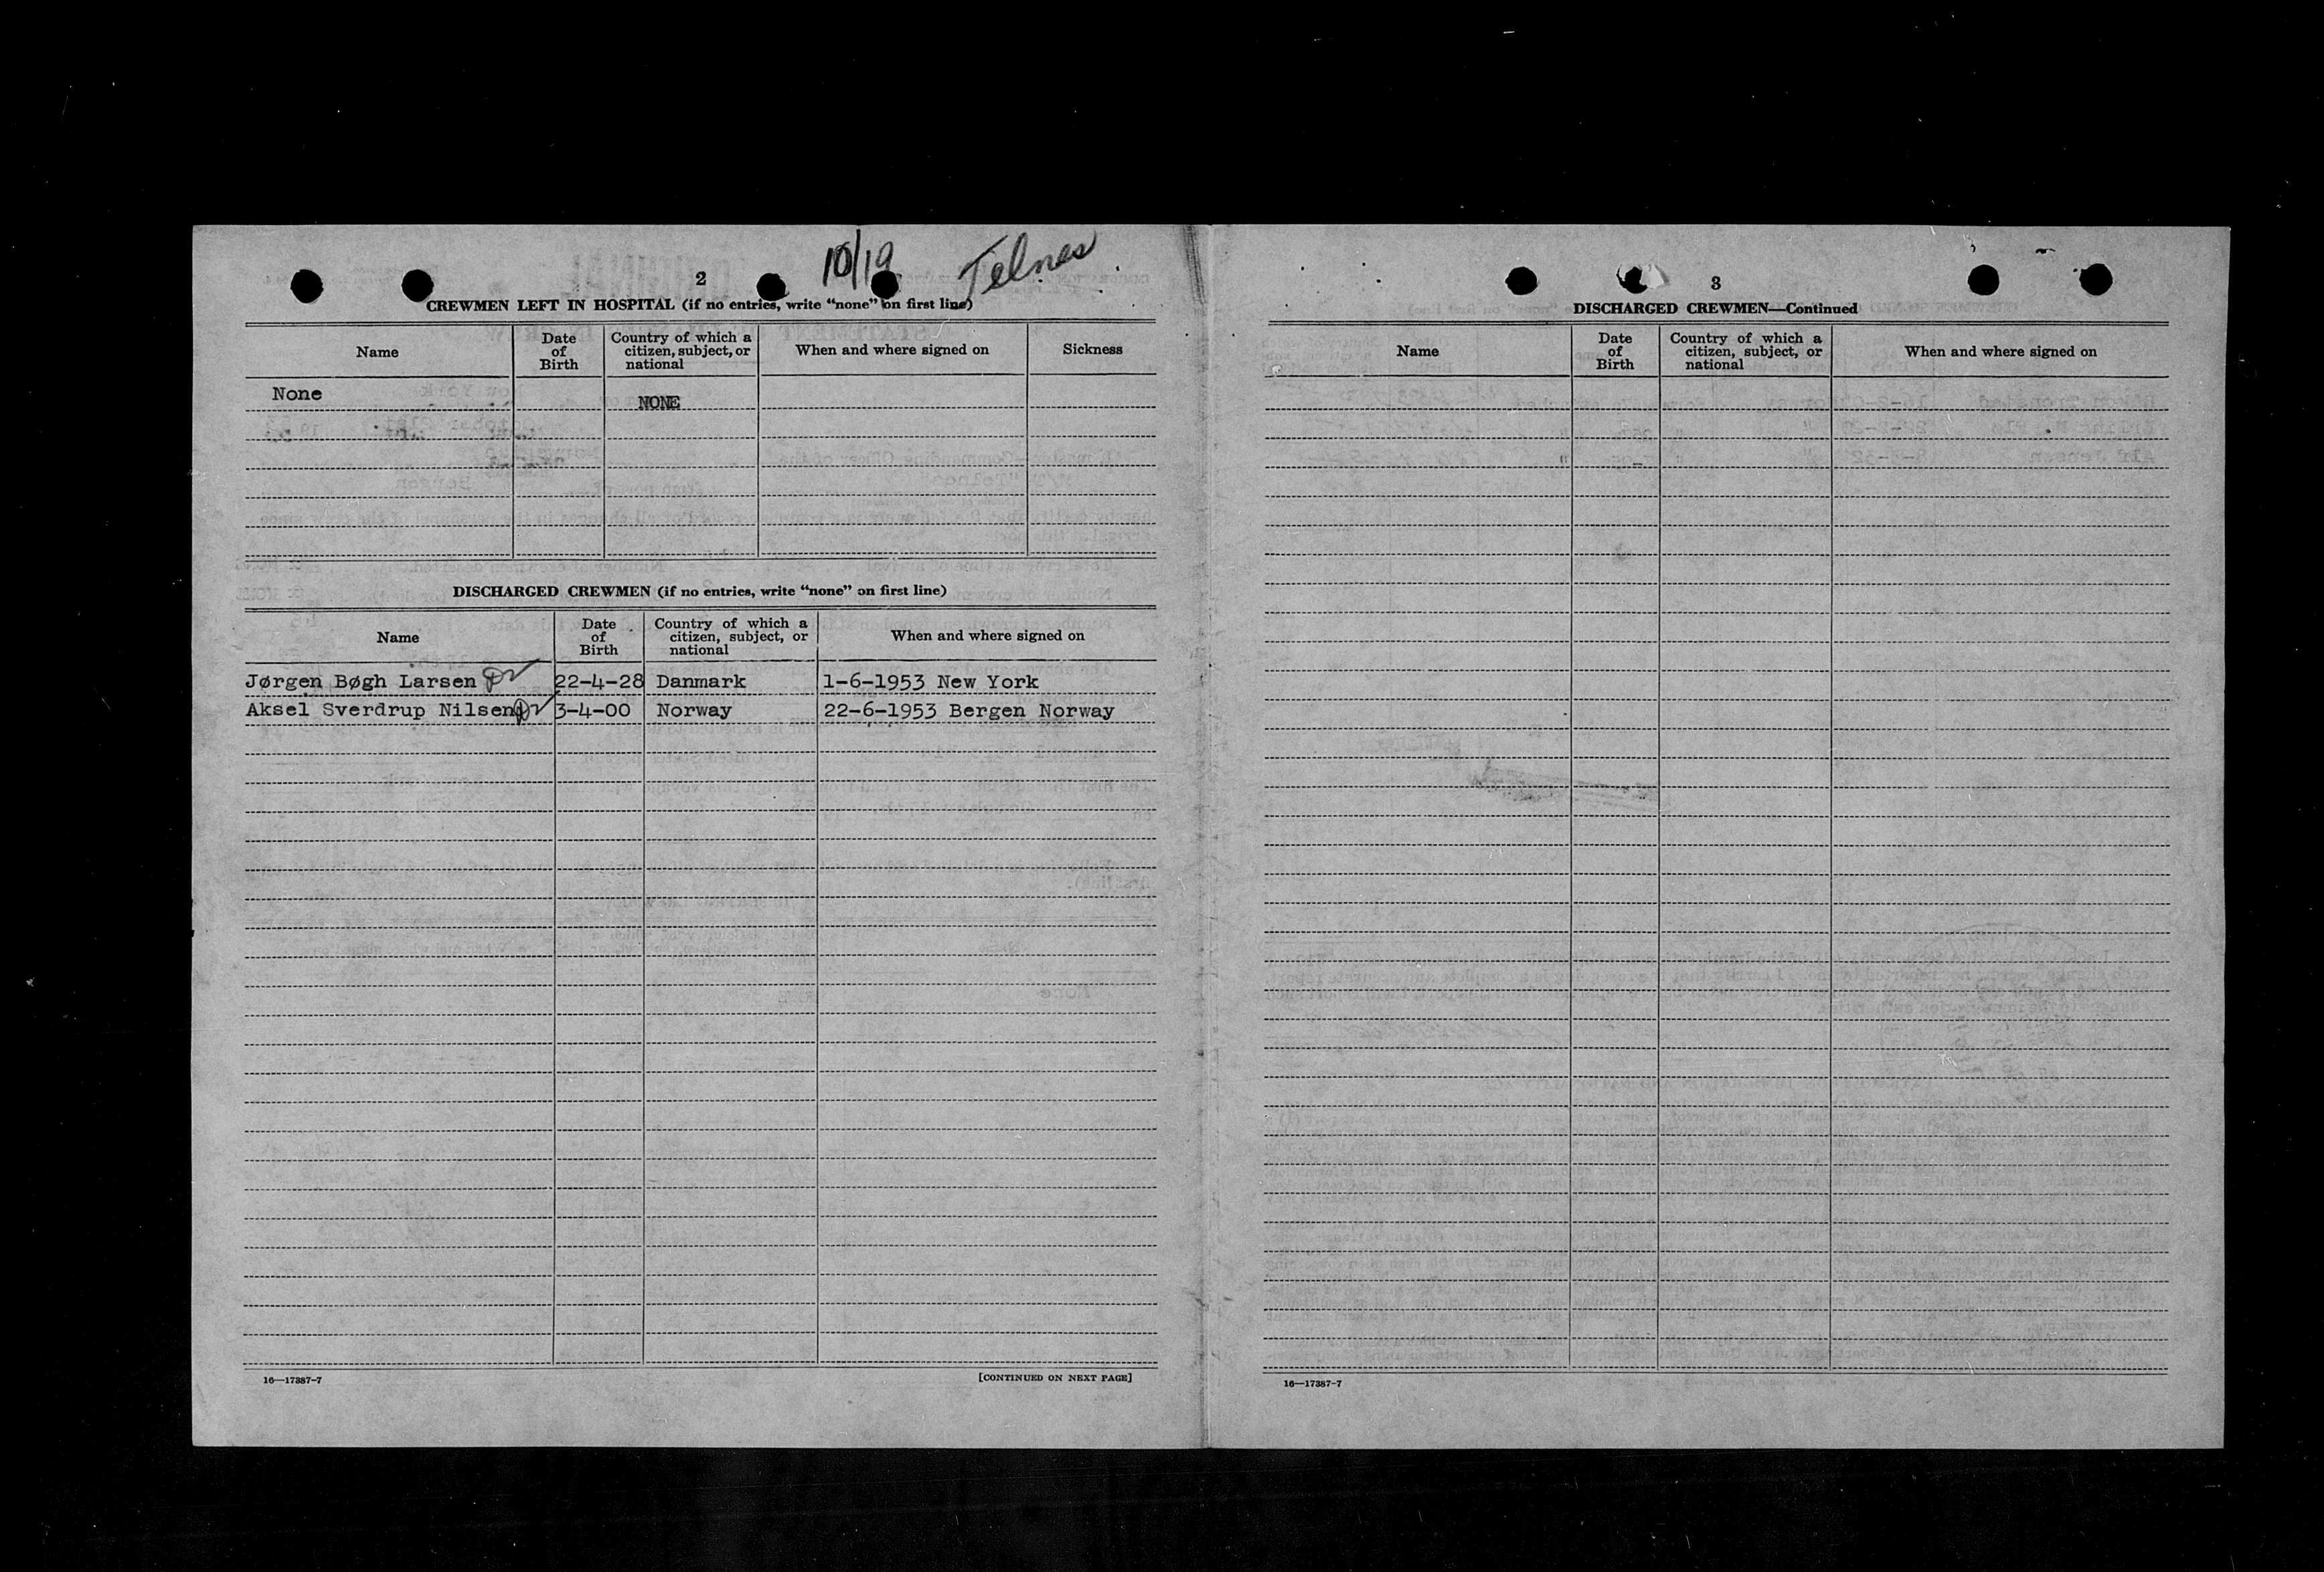 10/19 Telnes
2
CREWMEN LEFT IN HOSPITAL (if no entries, write “none” on first line)
Name
Date of Birth
Country of which a citizen, subject, or national
When and where signed on
Sickness
None
NONE
DISCHARGED CREWMEN (if no entries, write “none” on first line)
Name
Date of Birth
Country of which a citizen, subject, or national
When and where signed on
Jørgen Bøgh Larsen 22-4-28 Danmark 1-6-1953 New York
Aksel Sverdrup Nilsen 3-4-00 Norway 22-6-1953 Bergen Norway
16—17387-7
[CONTINUED ON NEXT PAGE]
3
DISCHARGED CREWMEN—Continued
Name
Date of Birth
Country of which a citizen, subject, or national
When and where signed on
16—17387-7